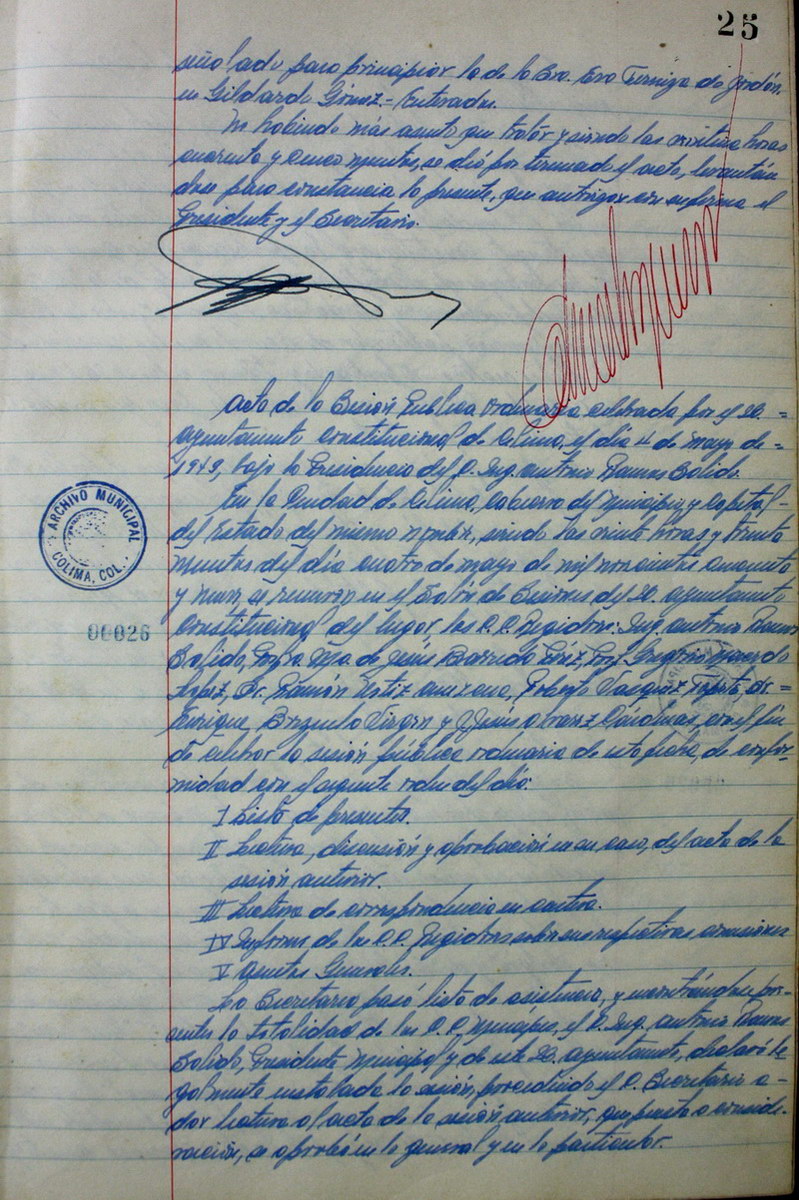 25
señalado para principiar la de la Sra. Eva Terriza de Jordán,
en Gildardo Gómez.- Enterados.
No habiendo más asunto que tratar y siendo las veintiuna horas
cuarenta y cinco minutos, se dió por terminado el acto, levantán
dose para constancia la presente, que autorizan con su firma el
Presidente y el Secretario.
Acta de la Sesión Pública Ordinaria celebrada por el H. =
Ayuntamiento Constitucional de Colima, el día 4 de mayo de =
1949, bajo la Presidencia del C. Ing. Antonio Ramos Salido.
En la Ciudad de Colima, Cabecera del Municipio y Capital =
del Estado del mismo nombre, siendo las veinte horas y treinta
minutos del día cuatro de mayo de mil novecientos cuarenta
y nueve, se reunieron en el Salón de Sesiones del H. Ayuntamiento
Constitucional del lugar, los C.C. Regidores: Ing. Antonio Ramos
Salido, Ma. de Jesús Barreda López, Prof. Gregorio
López, Dr. Ramón Ortiz Vasquez Dr. =
Enrique Brizuela Virgen y J. Jesús Alvarez Cárdenas, con el fin
de celebrar la sesión pública ordinaria de esta fecha, de confor-
midad con el siguiente orden del día:
I Lista de presentes.
II Lectura, discusión y aprobación en su caso, del acta de la
sesión anterior.
III Lectura de correspondencia en cartera.
IV Informes de los C.C. Regidores sobre sus respectivas comisiones
V Asuntos Generales.
La Secretaría pasó lista de asistencia, y encontrándose pre-
sentes la totalidad de los C.C. Munícipes, el C. Ing. Antonio Ramos
Salido, Presidente Municipal y de este H. Ayuntamiento, declaró le
galmente instalada la sesión, procediendo el C. Secretario a =
dar lectura al acta de la sesión anterior, que puesta a conside-
ración, se aprobó en lo general y en lo particular.
ARCHIVO MUNICIPAL
COLIMA, COL.
00026